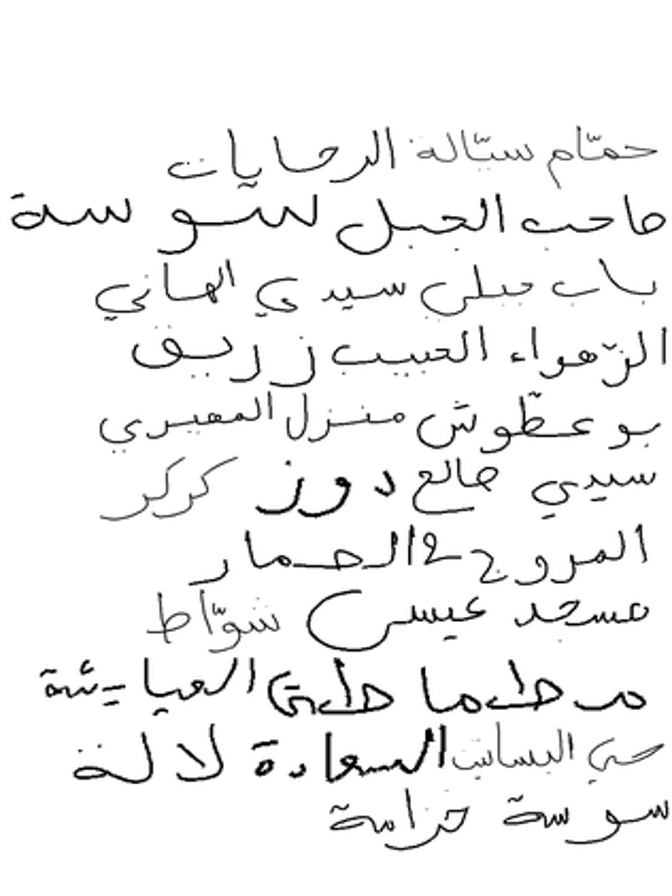 حمّام سيّالة الرحايات
صاحب الجبل سوسة
باب جبلي سيدي الهاني
الزّهراء الحبيب زريق
بو عطّوش منزل المعيري
سيدي صالح دوز كركر
المروج الحمار
مسجد عيسى شوّاط
مطماطة العيايشة
حي البساتين السعادة لالة
سوسة خزامة